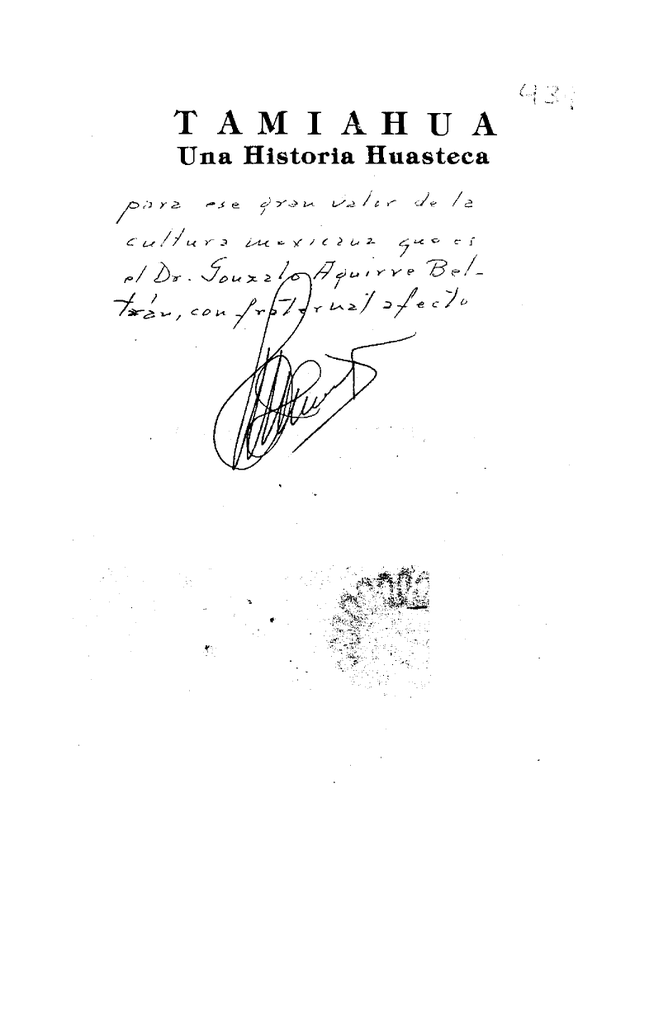 T A M I A H U A
Una Historia Huasteca
para ese gran valor de la
cultura mexicana que es
el Dr. Gonzalo Aguirre Bel-
trán, con fraternal afecto